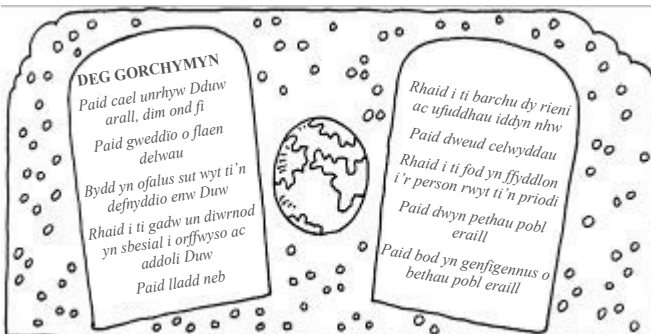 DEG GORCHYMYN
Paid cael unrhyw Dduw
arall, dim ond fi
Paid gweddïo o flaen
delwau
Bydd yn ofalus sut wyt ti'n
defnyddio enw Duw
Rhaid i ti gadw un diwrnod
yn sbesial i orffwyso ac
addoli Duw
Paid lladd neb
Rhaid i ti barchu dy rieni
ac ufuddhau iddyn nhw
Paid dweud celwyddau
Rhaid i ti fod yn ffyddlon
i'r person rwyt ti'n priodi
Paid dwyn pethau pobl
eraill
Paid bod yn genfigennus o
bethau pobl eraill